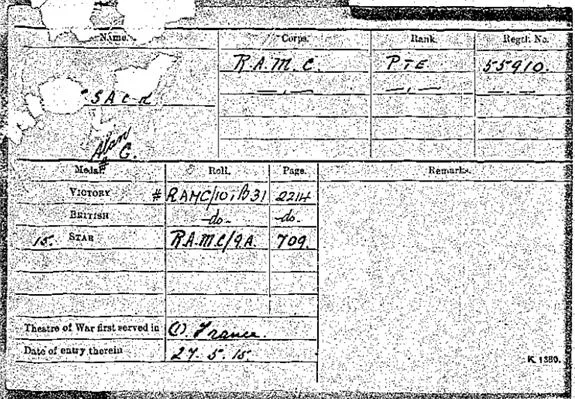 Name. Corps. Rank. Regtl. No.
R.A.M.C. PTE 55910.
—„— —„— —„—
SACK
Alan
G.
Medal. Roll. Page. Remarks.
VICTORY # RAMC/101B31 2214
BRITISH -do- -do-
15 STAR R.A.M.C/9A. 709.
Theatre of War first served in (1). France.
Date of entry therein 27. 5. 15.
K. 1380.